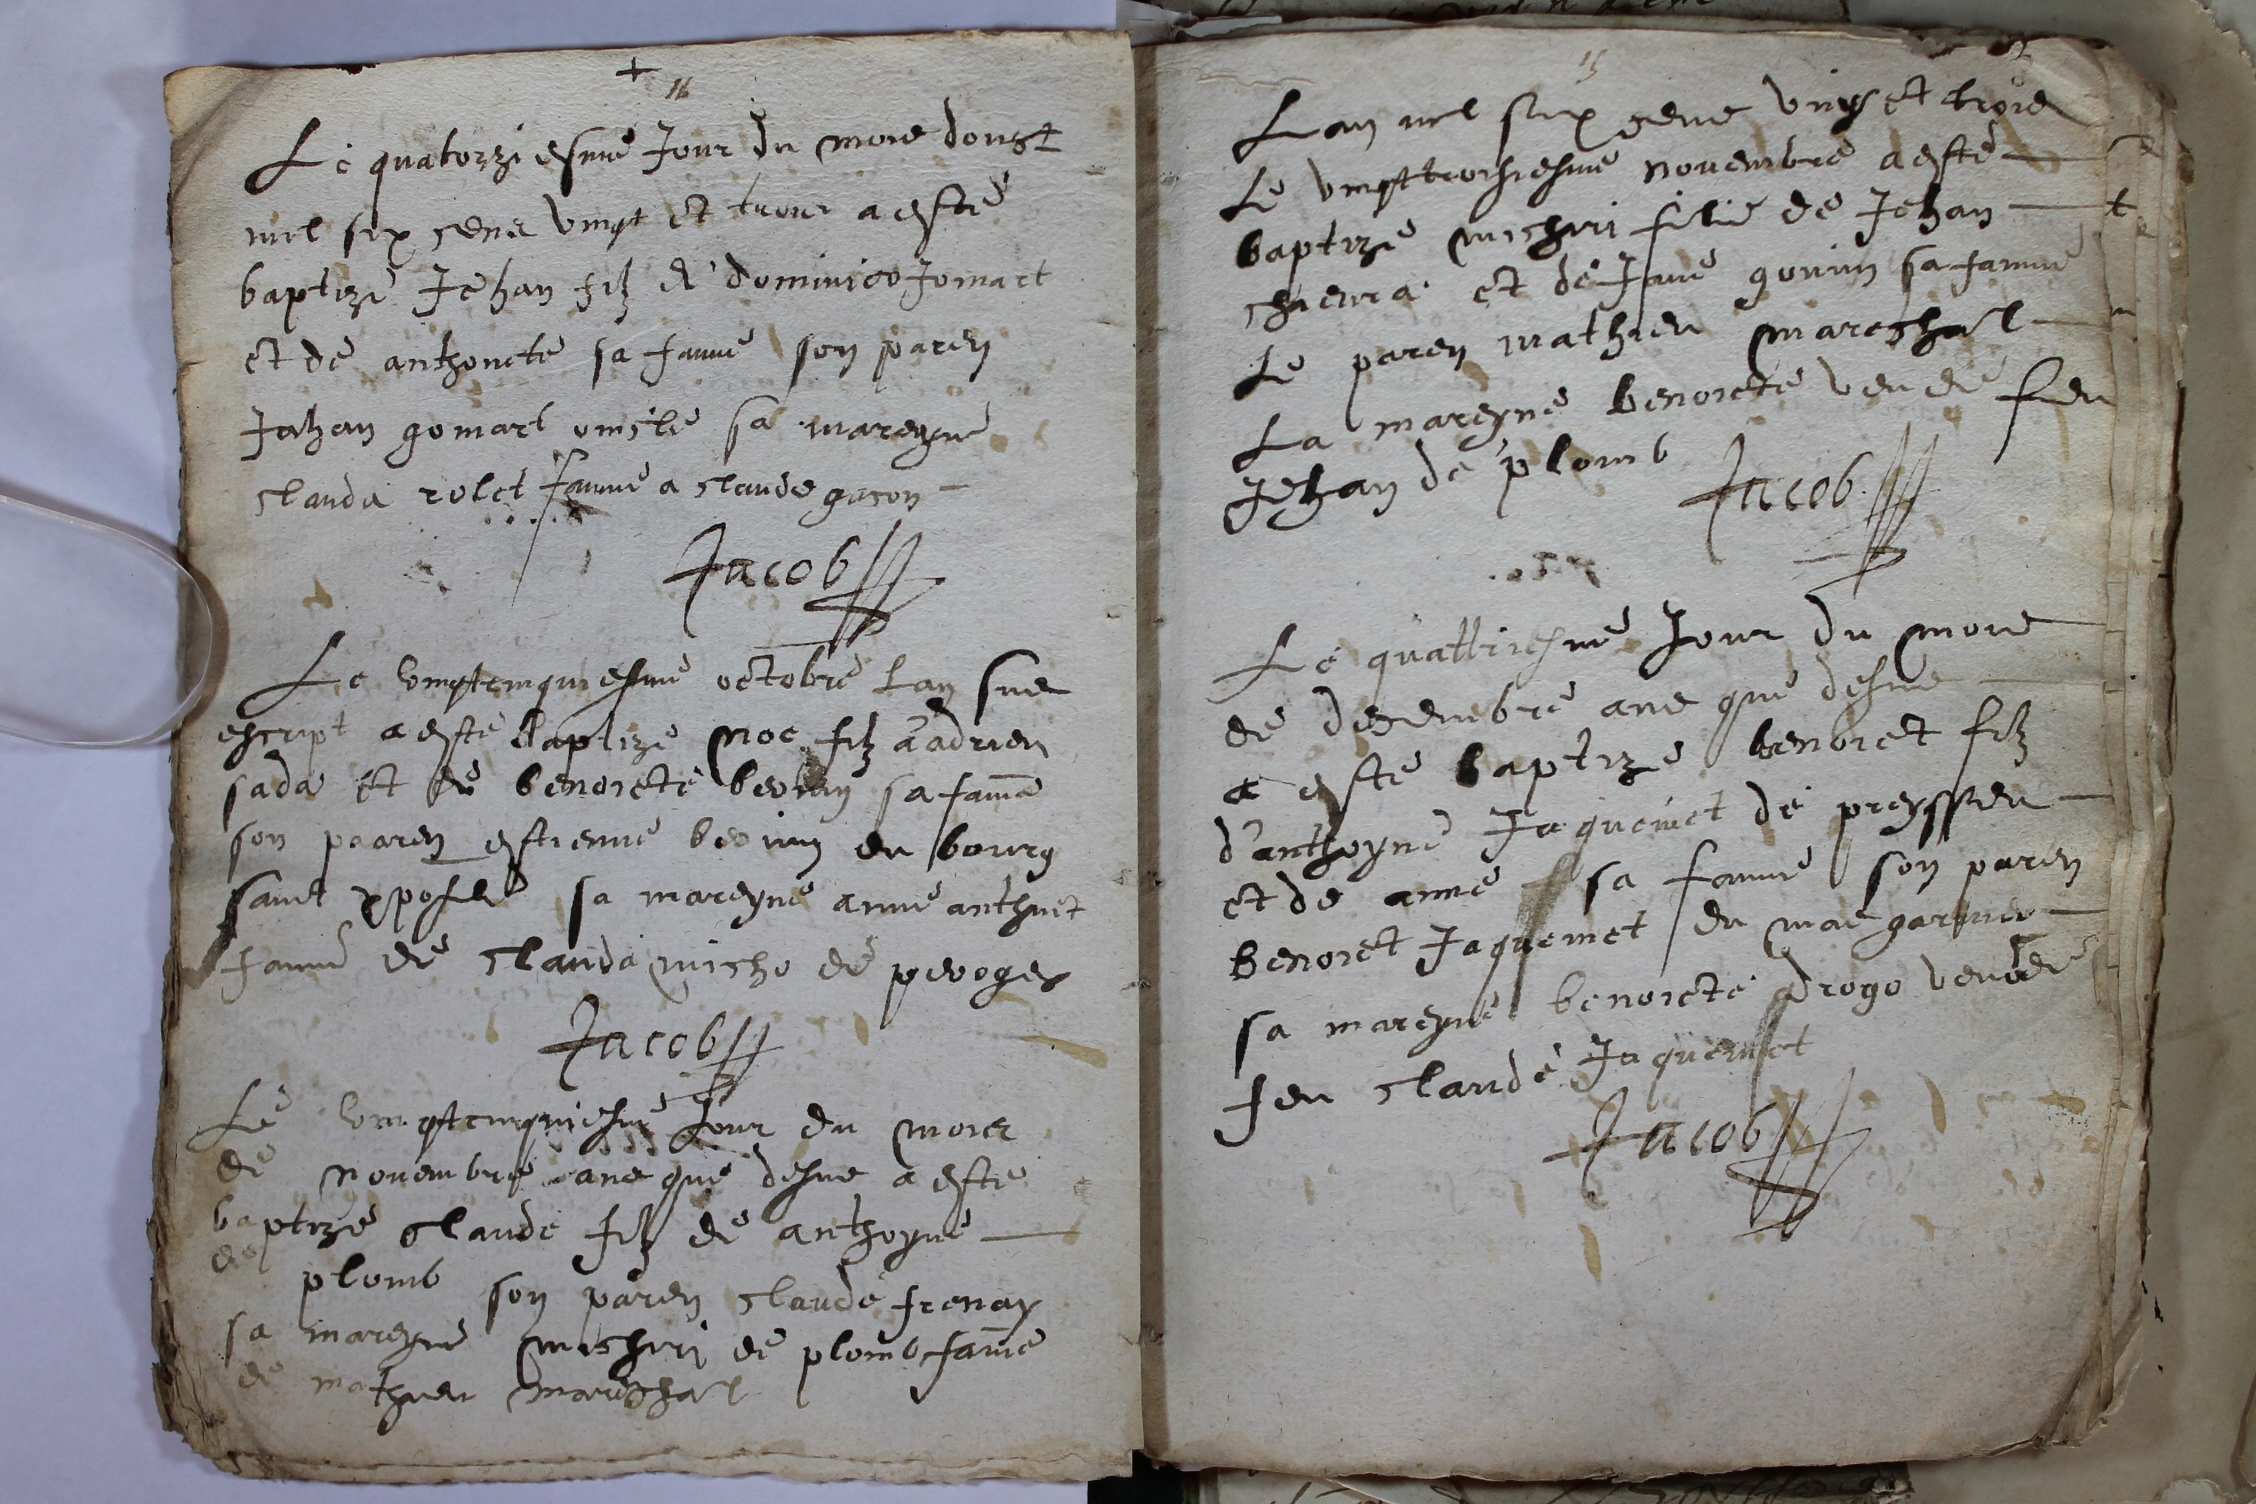 +
Le quatorziesme Jour du mois doust
mil six cens vingt et trois a esté
baptizé Jehan filz de dominico Jomart
et de anthoncte sa famme son paren
Jahan gomart oncle sa mareyne
clauda rolet famme a claude gucon
Jacob
Le vingtcinquiesme octobre lan sus
escript a esté baptizé noe filz a adrien
sada et de benoicte sa famē
son paaren estienne du bourg
sainct xpofle sa mareyne anne anthuet
famme de clauda micho de peroges
Jacob
Le vingtcinquiesme Jour du mois
de novembre ans que desus a esté
baptizé claude filz de anthoyne
de plomb son paren claude frenay
sa mareyne micheri de plomb famē
de mathieu mareschal
15
Lan mil six cens vingt et trois
Le vingttroisiesme novembre a esté
baptizé micheri filie de Jehan
et de Jane gonin sa famme
Le paren mathieu mareschal
La mareyne benoicte veuve feu
Jehan de plomb
Jacob
Le quattriesme Jour du mois
de decembre ans que desus
a esté baptizé benoict filz
d'anthoyne Jaquemet de preyssieu
et de anne sa famme son paren
benoict Jaquemet du mas garnier
sa mareyne benoicte drogo veuve
feu claude Jaquemet
Jacob